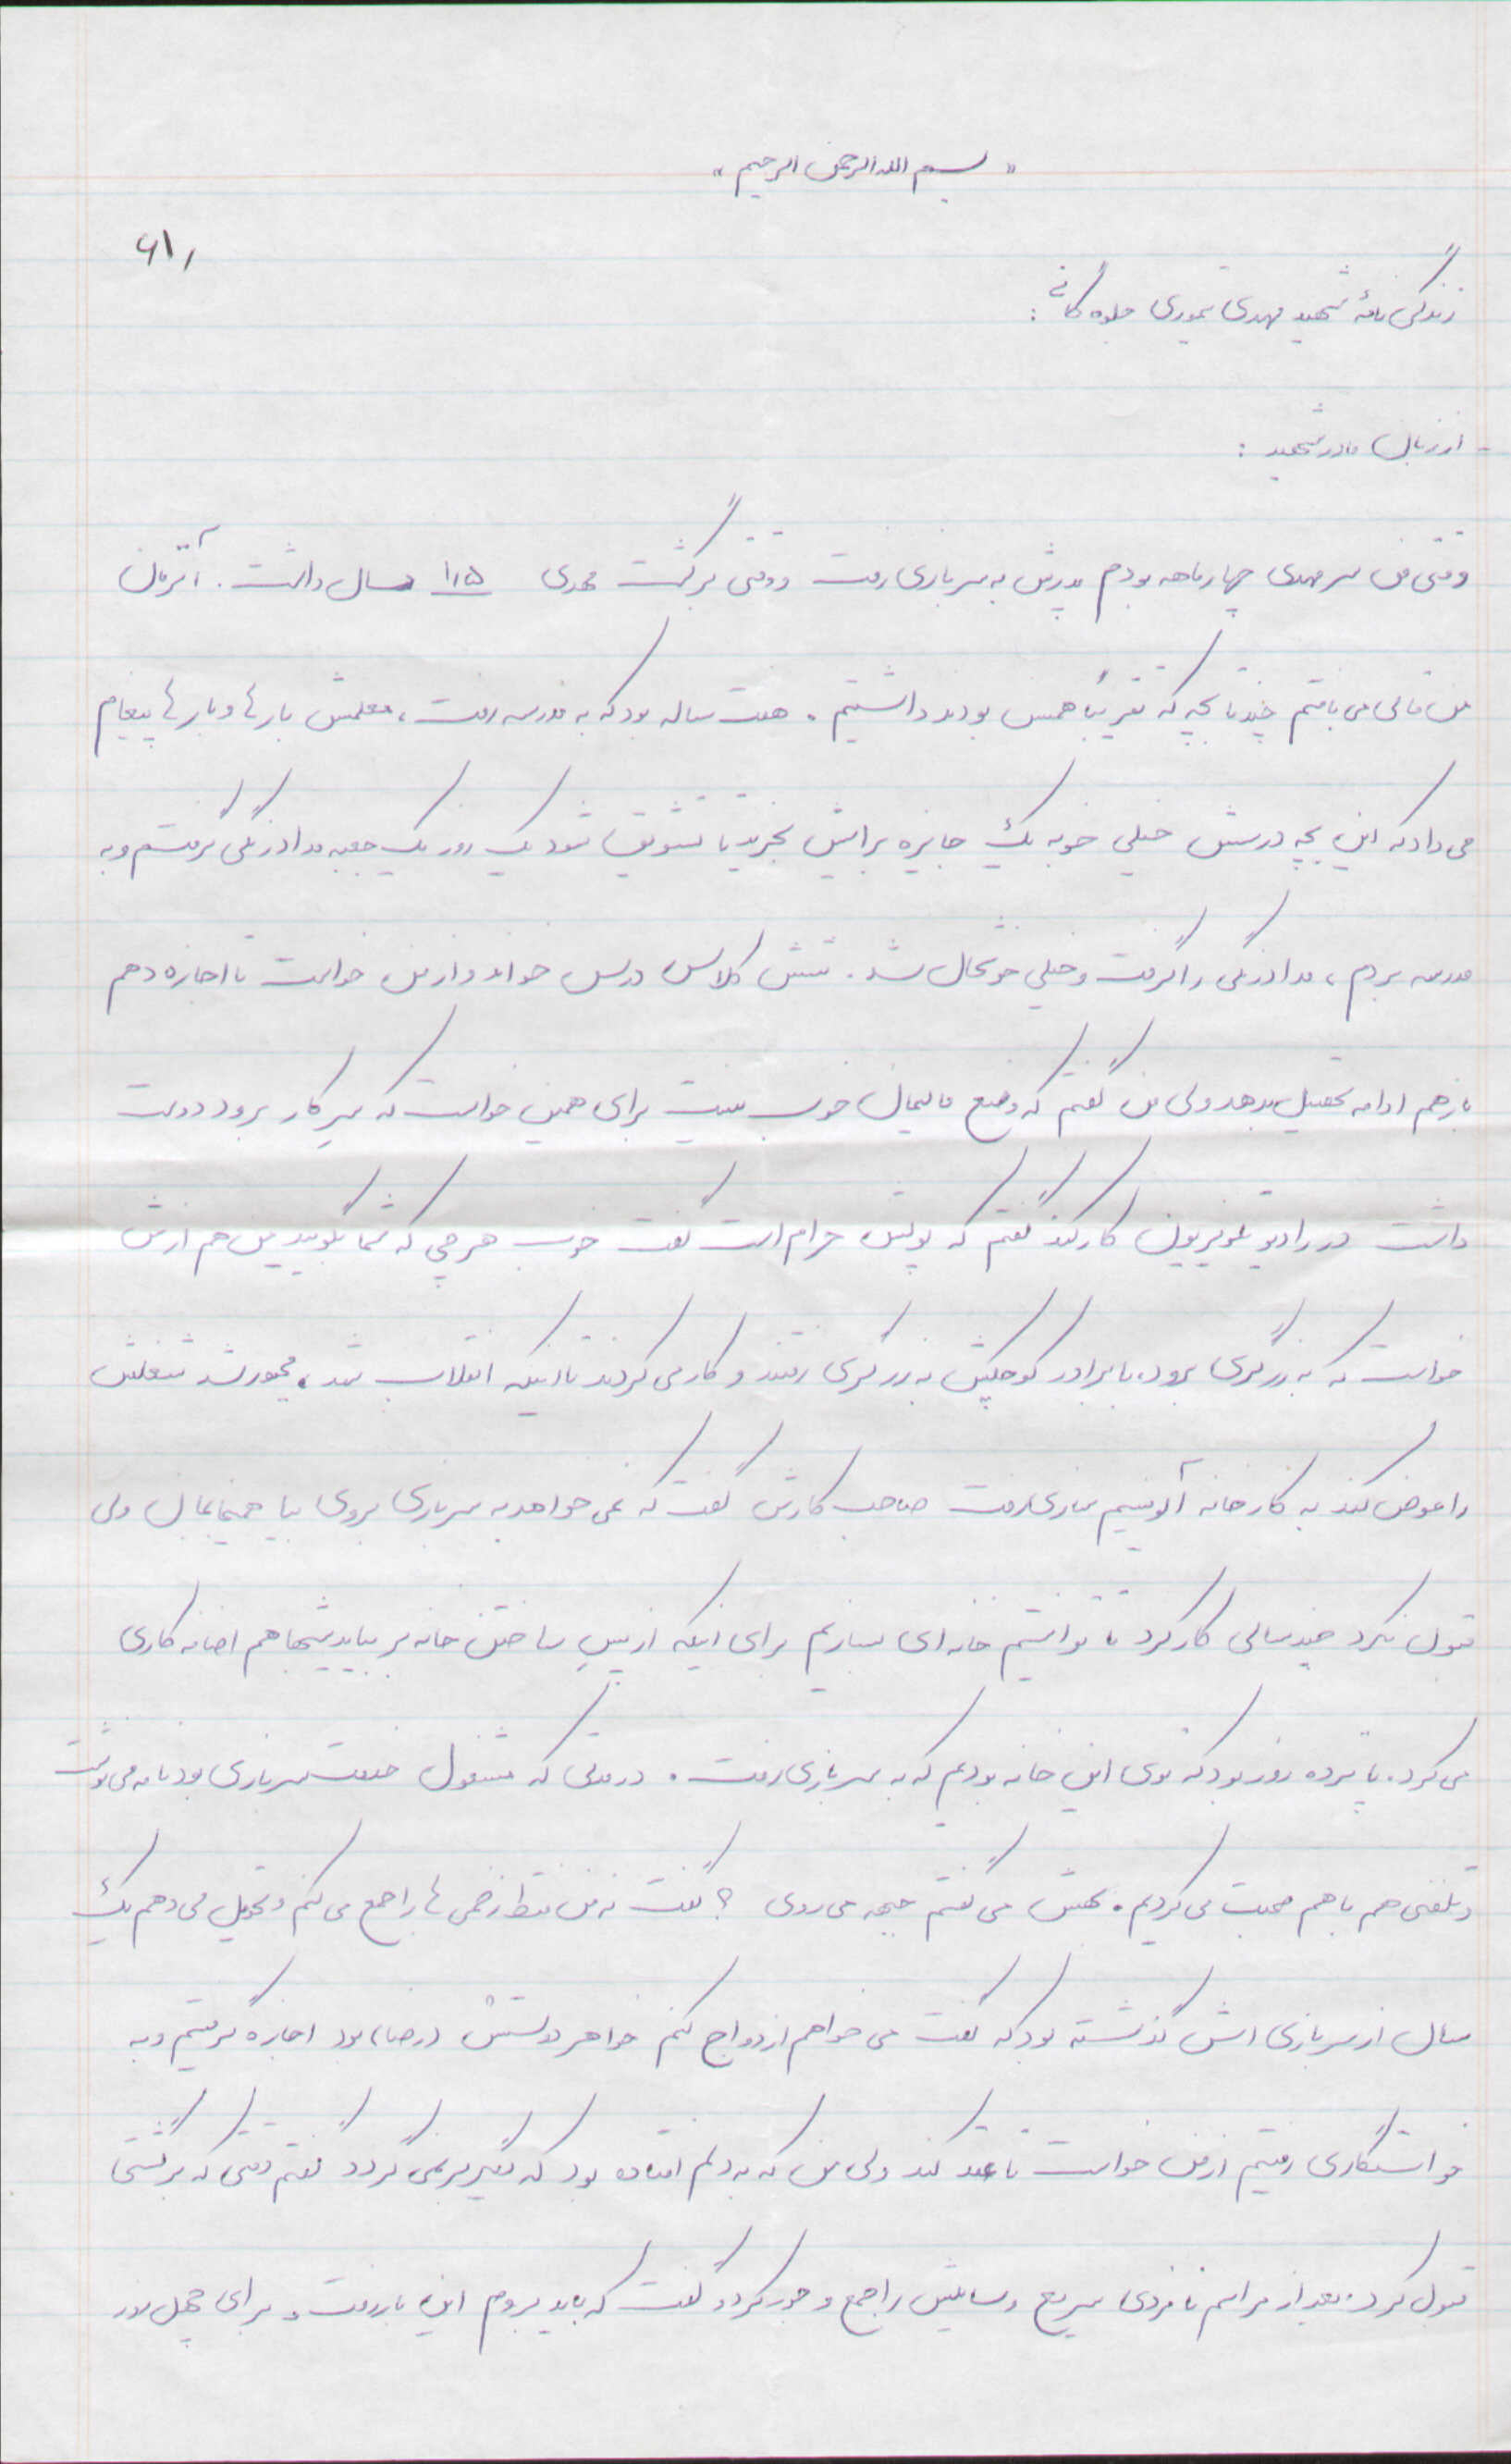 « بسم الله الرحمن الرحیم »
۶۱٫
زندگی نامهٔ شهید مهدی تیموری جلوه گانی :
- از زبان مادر شهید :
وقتی من سر مهدی چهار ماهه بودم پدرش به سربازی رفت و وقتی برگشت مهدی ۱٫۵ سال داشت . آنزمان
من قالی می بافتم چند تا بچه که تقریباً همسن بودند داشتیم . هفت ساله بود که به مدرسه رفت ، معلمش بارها و بارها پیغام
می داد که این بچه درسش خیلی خوبه یک جایزه برایش بخرید تا تشویق شود یک روز یک جعبه مداد رنگی گرفتم و به
مدرسه بردم ، مداد رنگی را گرفت و خیلی خوشحال شد . شش کلاس درس خواند و از من خواست تا اجازه دهم
بازهم ادامه تحصیل بدهد ولی من گفتم که وضع مالیمان خوب نیست برای همین خواست که سر کار برود دوست
داشت در رادیو تلویزیون کار کند گفتم که پولش حرام است گفت خوب هر چی که شما بگویید من هم ازش
خواستم که به زرگری برود . با برادر کوچکش به زرگری رفتند و کار می کردند تا اینکه انقلاب شد ، مجبور شد شغلش
را عوض کند به کارخانه آلومنیم سازی رفت صاحب کارش گفت که نمی خواهد به سربازی بروی بیا همینجا بمان ولی
قبول نکرد چند سالی کار کرد تا توانستیم خانه ای بسازیم برای اینکه از پسِ ساختن خانه بر بیاید شبها هم اضافه کاری
می کرد . پانزده روز بود که توی این خانه بودیم که به سربازی رفت . در مدتی که مشغول خدمت سربازی بود نامه می نوشت
و تلفنی هم با هم صحبت می کردیم . بهش می گفتم جبهه می روی ؟ گفت نه من فقط زخمی ها را جمع می کنم و تحویل می دهم یک
سال از سربازی اش گذشته بود که گفت می خواهم ازدواج کنم خواهر دوستش (رضا) بود اجازه گرفتیم و به
خواستگاری رفتیم از من خواست تا عقد کند ولی من که به دلم افتاده بود که دیگر بر نمی گردد گفتم وقتی که برگشتی
قبول کرد . بعد از مراسم نامزدی سریع وسایلش را جمع و جور کرد و گفت که باید بروم این بار رفت و برای چهل روز